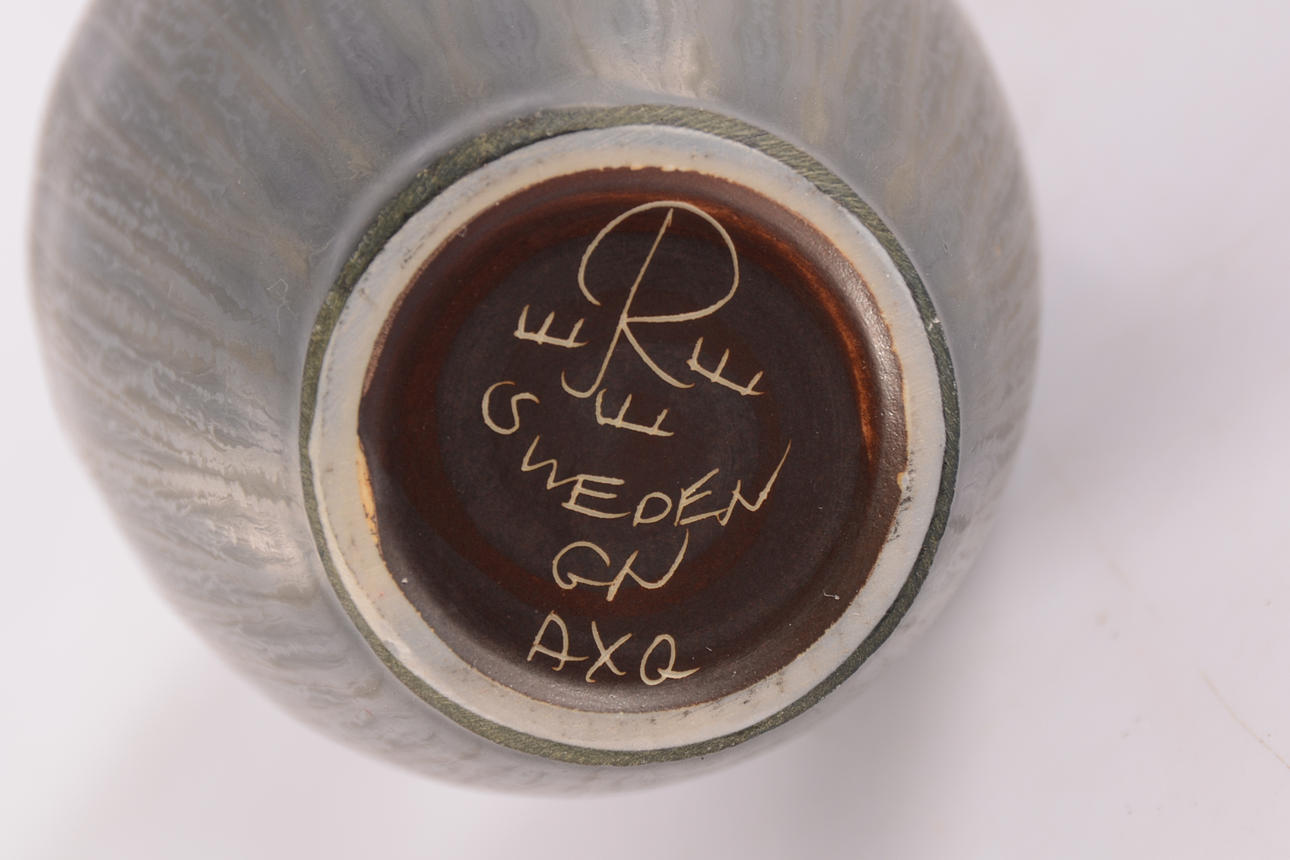 R
E E
E
SWEDEN
GN
AXQ